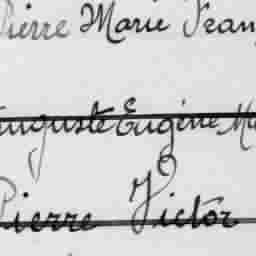 Pierre Marie Fran
Auguste Eugène Ma
Pierre Victor